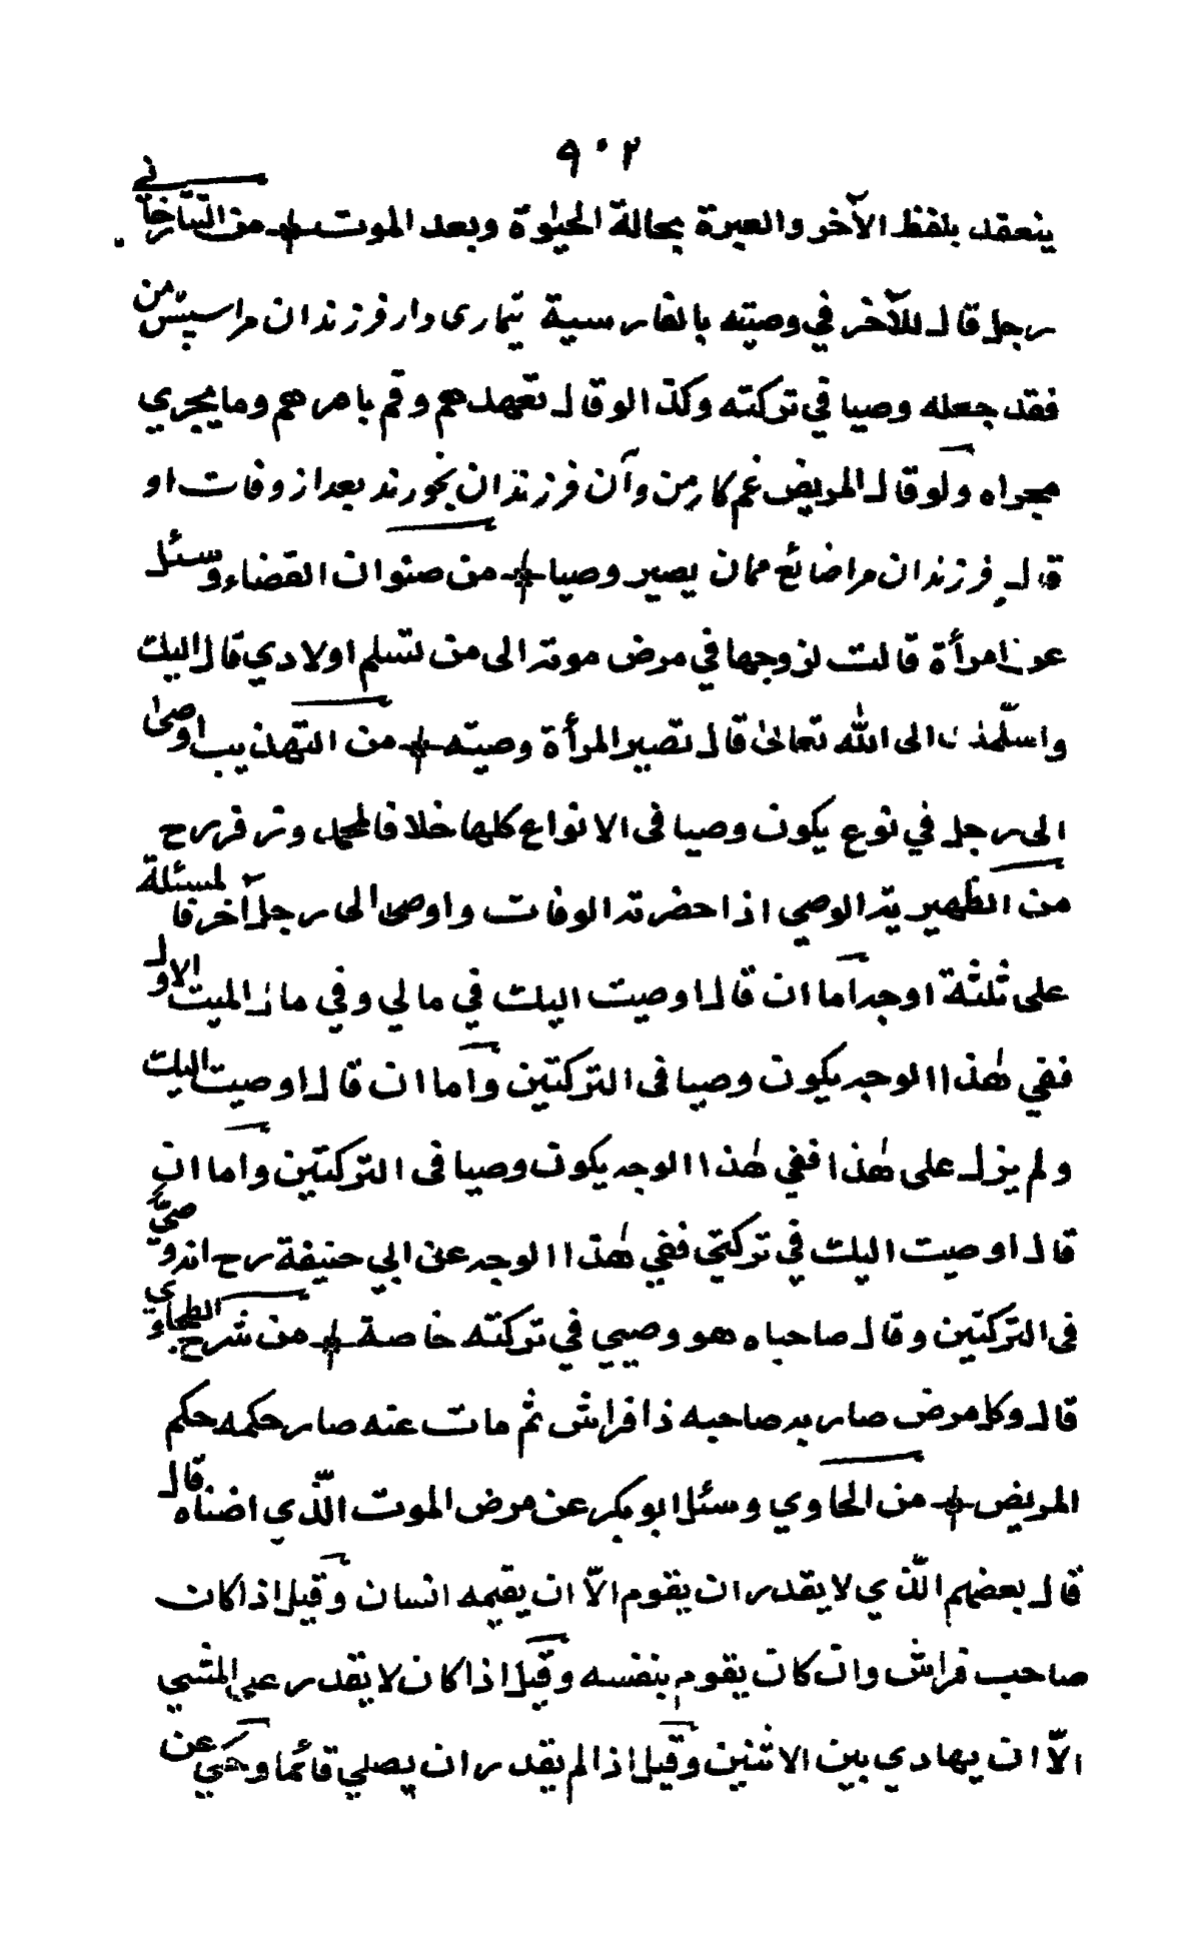 ٩٠٢
ينعقد بلفظ الآخر والعبرة بحالة الحيٰوة وبعد الموت من التتارخاني
رجل قال للآخر في وصيته بالفارسية تيماري دار فرزندان مرا سپس من
فقد جعله وصيا في تركته وكذا لو قال تعهدهم وقم بامرهم وما يجري
مجراه ولو قال المريض غم كار من وآن فرزندان بخورند بعد از وفات او
قال فرزندان مرا ضائع ممان يصير وصيا من صنوان القضاء وسئل
عن امرأة قالت لزوجها في مرض موته الى من تسلم اولادي قال اليك
واسلّمك الى الله تعالىٰ قال تصير المرأة وصيته من التهذيب اوصىٰ
الى رجل في نوع يكون وصيا فى الانواع كلها خلافا لمحمد وزفر رح
من الظهيرية الوصي اذا حضرته الوفات واوصى الى رجل آخر فالمسئلة
على ثلثة اوجه اما ان قال اوصيت اليك في مالي وفي مال الميت الاول
ففي هٰذا الوجه يكون وصيا فى التركتين واما ان قال اوصيت اليك
ولم يزل على هٰذا ففي هٰذا الوجه يكون وصيا فى التركتين واما ان
قال اوصيت اليك في تركتي ففي هٰذا الوجه عن ابي حنيفة رح انه وصيّ
فى التركتين وقال صاحباه هو وصيي في تركته خاصة من شرح الطحاوي
قال وكل مرض صار به صاحبه ذا فراش ثم مات عنه صار حكمه حكم
المريض من الحاوي وسئل ابو بكر عن مرض الموت الّذي اضناه قال
قال بعضهم الّذي لا يقدر ان يقوم الّا ان يقيمه انسان وقيل اذا كان
صاحب فراش وان كان يقوم بنفسه وقيل اذا كان لا يقدر على المشي
الّا ان يهادي بين الاثنين وقيل اذا لم يقدر ان يصلي قائما وحكي عن